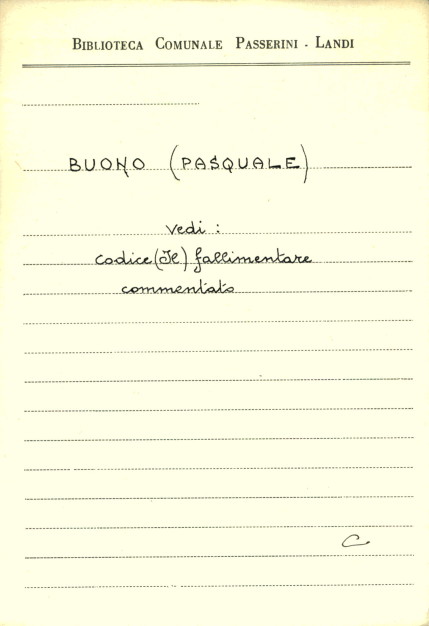 BIBLIOTECA COMUNALE PASSERINI - LANDI
BUONO (PASQUALE)
Vedi :
Codice (Il) fallimentare
commentato
C